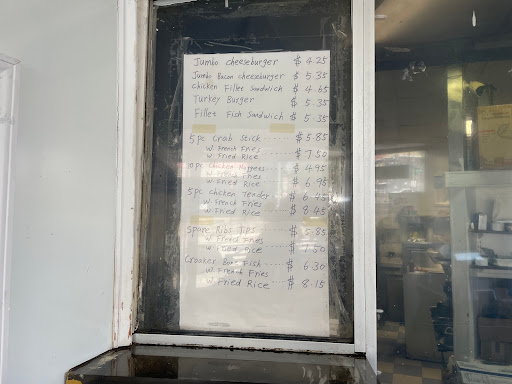 Jumbo cheeseburger $ 4.25
Jumbo Bacon cheeseburger $ 5.35
chicken Fillet Sandwich $ 4.65
Turkey Burger $ 5.35
Fillet Fish Sandwich $ 5.35
5 pc Crab Stick $ 5.85
w. French Fries
w. Fried Rice $ 7.50
10 pc Chicken Nuggets $ 4.95
w. French Fries
w. Fried Rice $ 6.95
5 pc Chicken Tender $ 6.45
w. French Fries
w. Fried Rice $ 8.45
Spare Ribs Tips $ 5.85
w. French Fries
w. Fried Rice $ 7.50
Crooker Fish $ 6.30
w. French Fries
w. Fried Rice $ 8.15